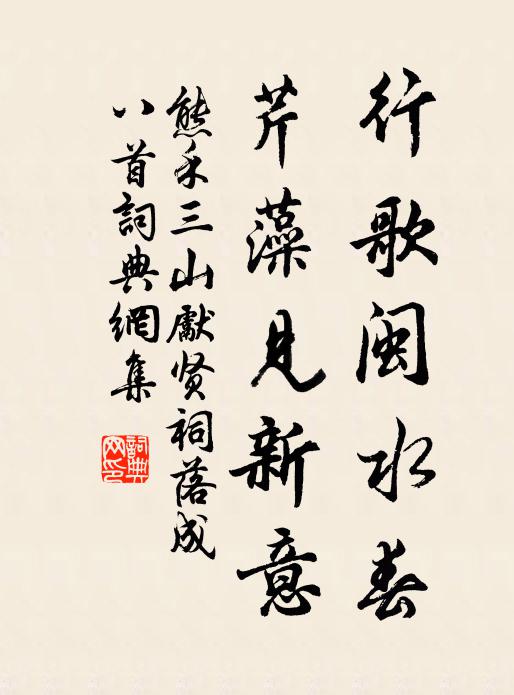 行歌闽水春
芹藻見新意
熊禾三山獻贤祠落成
八首詞典網集
詞典网印